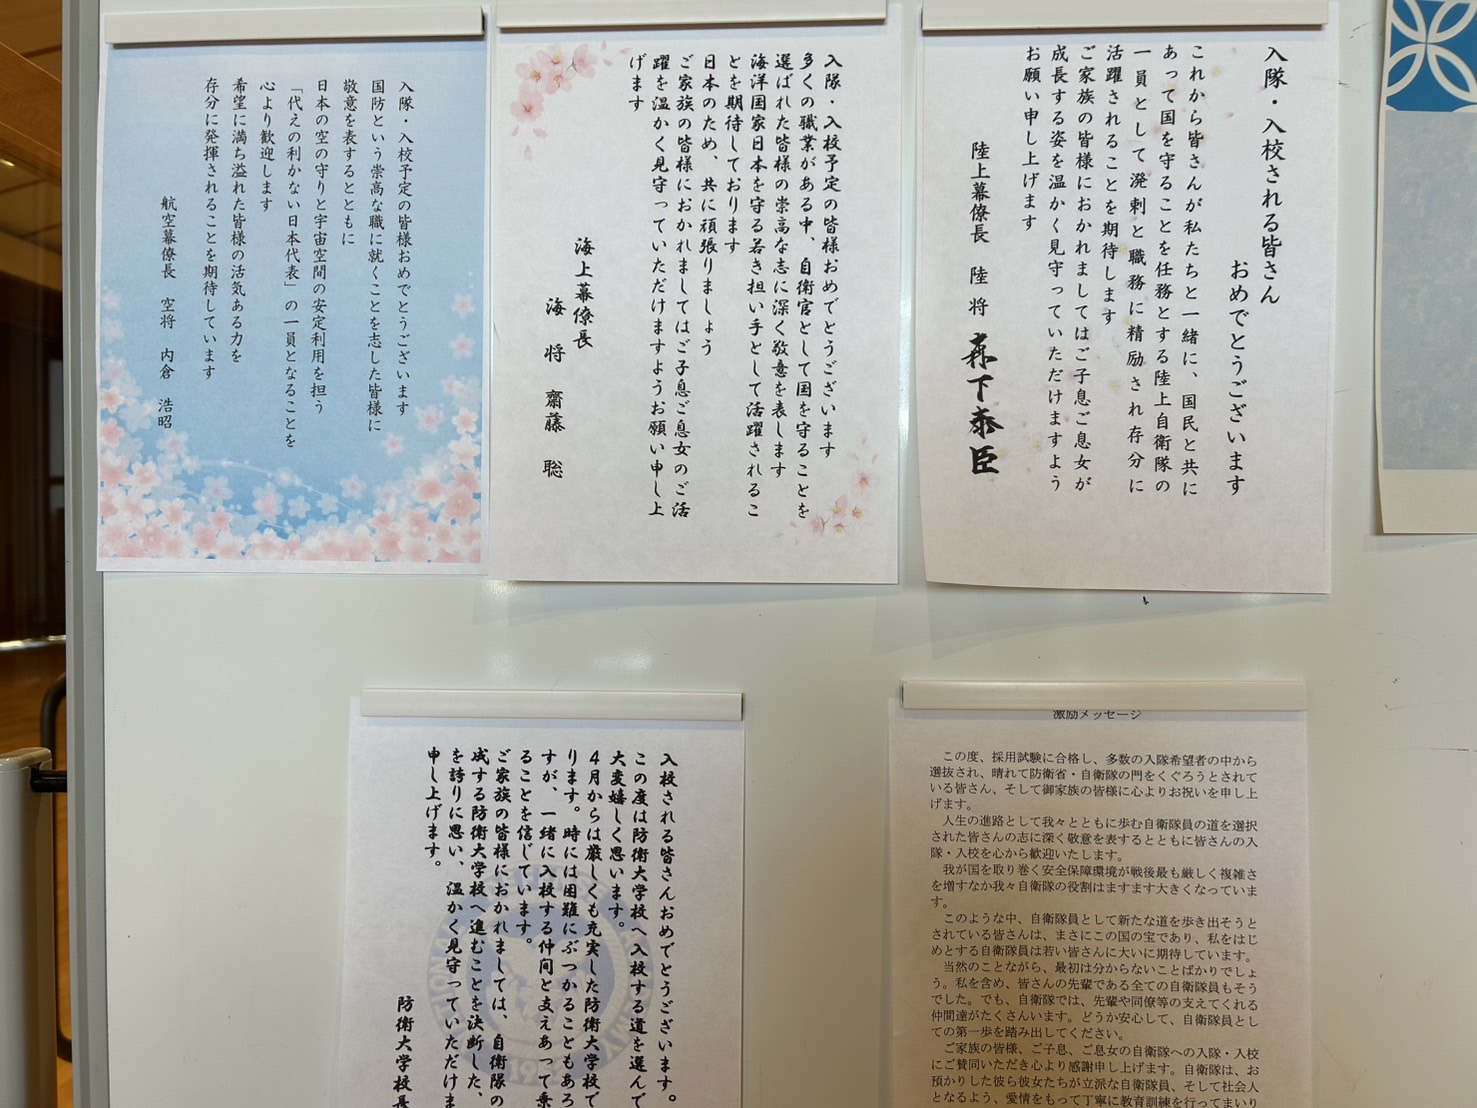 入隊・入校される皆さん
おめでとうございます
これから皆さんが私たちと一緒に、国民と共に
あって国を守ることを任務とする陸上自衛隊の
一員として溌剌と職務に精励され存分に
活躍されることを期待します
ご家族の皆様におかれましてはご子息ご息女が
成長する姿を温かく見守っていただけますよう
お願い申し上げます
陸上幕僚長 陸将 森下泰臣
入隊・入校予定の皆様おめでとうございます
多くの職業がある中、自衛官として国を守ることを
選ばれた皆様の崇高な志に深く敬意を表します
海洋国家日本を守る若き担い手として活躍されるこ
とを期待しております
日本のため、共に頑張りましょう
ご家族の皆様におかれましてはご子息ご息女のご活
躍を温かく見守っていただけますようお願い申し上
げます
海上幕僚長
海将 齋藤 聡
入隊・入校予定の皆様おめでとうございます
国防という崇高な職に就くことを志した皆様に
敬意を表するとともに
日本の空の守りと宇宙空間の安定利用を担う
「代えの利かない日本代表」の一員となることを
心より歓迎します
希望に満ち溢れた皆様の活気ある力を
存分に発揮されることを期待しています
航空幕僚長 空将 内倉 浩昭
激励メッセージ
この度、採用試験に合格し、多数の入隊希望者の中から
選抜され、晴れて防衛省・自衛隊の門をくぐろうとされて
いる皆さん、そして御家族の皆様に心よりお祝いを申し上
げます。
人生の進路として我々とともに歩む自衛隊員の道を選択
された皆さんの志に深く敬意を表するとともに皆さんの入
隊・入校を心から歓迎いたします。
我が国を取り巻く安全保障環境が戦後最も厳しく複雑さ
を増すなか我々自衛隊の役割はますます大きくなっていま
す。
このような中、自衛隊員として新たな道を歩き出そうと
されている皆さんは、まさにこの国の宝であり、私をはじ
めとする自衛隊員は若い皆さんに大いに期待しています。
当然のことながら、最初は分からないことばかりでしょ
う。私を含め、皆さんの先輩である全ての自衛隊員もそう
でした。でも、自衛隊では、先輩や同僚等の支えてくれる
仲間達がたくさんいます。どうか安心して、自衛隊員とし
ての第一歩を踏み出してください。
ご家族の皆様、ご子息、ご息女の自衛隊への入隊・入校
にご賛同いただき心より感謝申し上げます。自衛隊は、お
預かりした彼ら彼女たちが立派な自衛隊員、そして社会人
となるよう、愛情をもって丁寧に教育訓練を行ってまいり
入校される皆さんおめでとうございます。
この度は防衛大学校へ入校する道を選んで
大変嬉しく思います。
4月からは厳しくも充実した防衛大学校で
ります。時には困難にぶつかることもあろ
すが、一緒に入校する仲間と支えあって乗
ることを信じています。
ご家族の皆様におかれましては、自衛隊の
成する防衛大学校へ進むことを決断した、
を誇りに思い、温かく見守っていただけま
申し上げます。
防衛大学校長